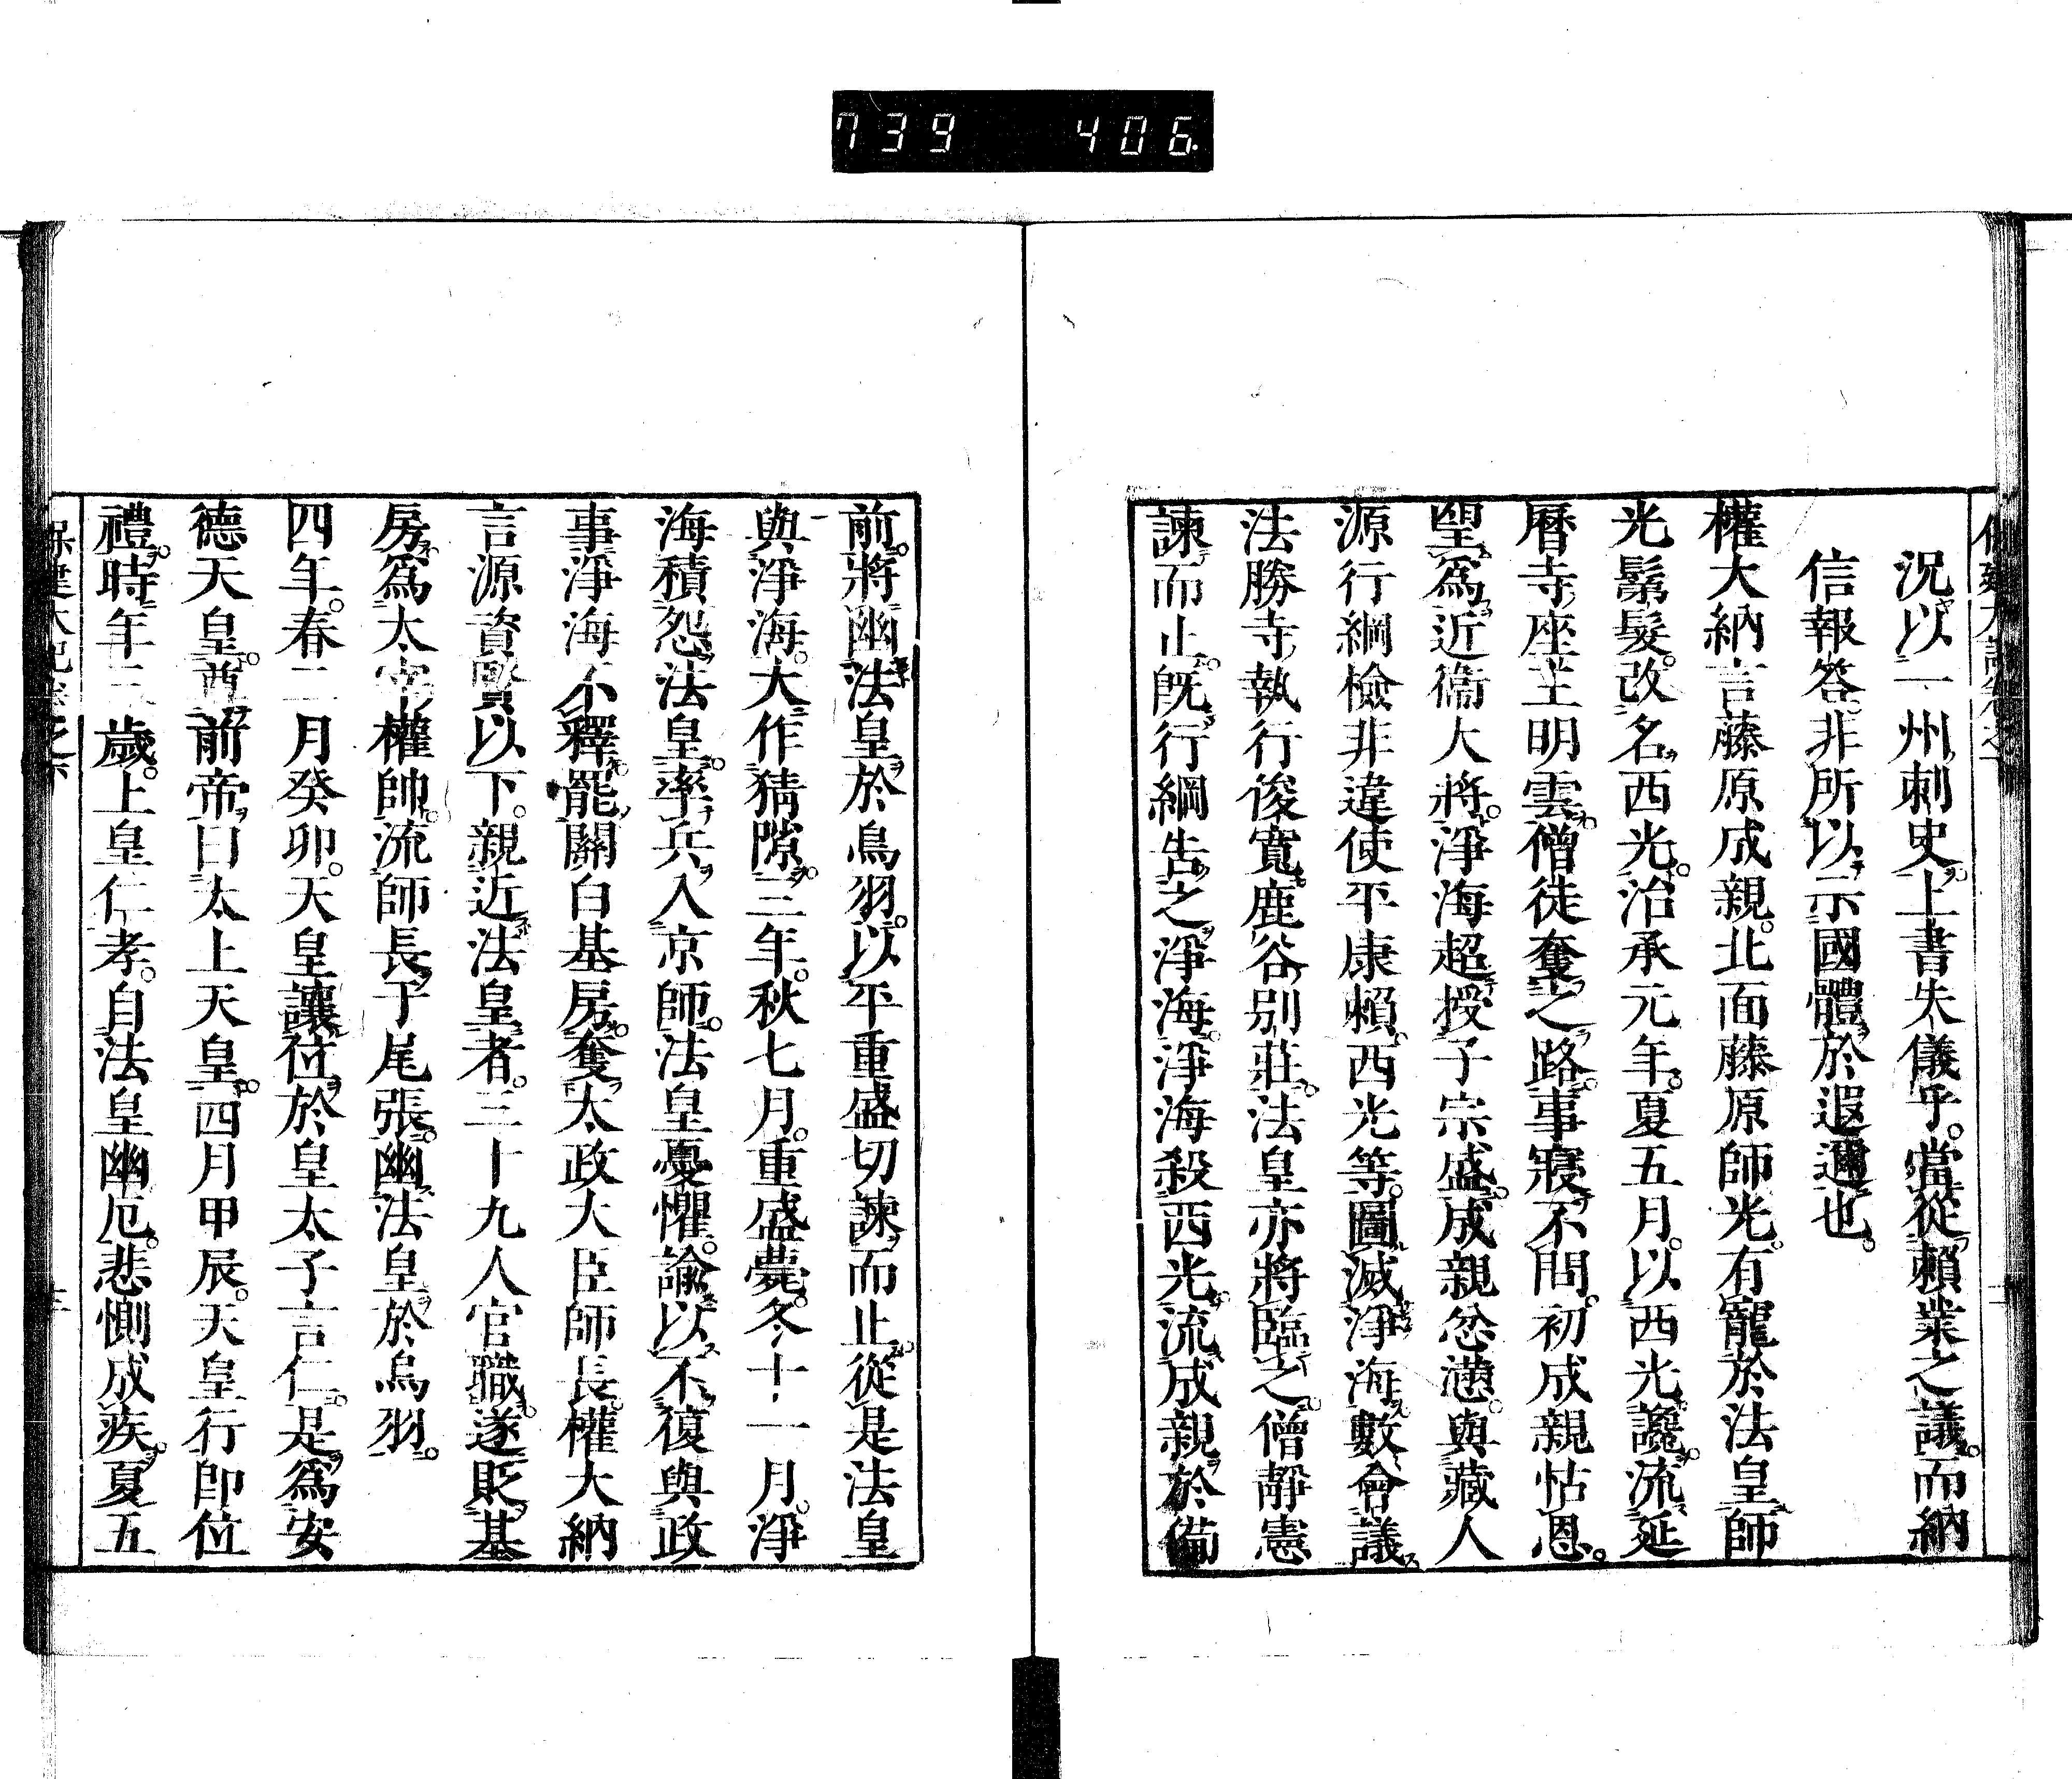 739 406
況以一州刺史上書失儀乎。當從賴業之議。而納
信報答。非所以示國體於遐邇也。
權大納言藤原成親。北面藤原師光。有寵於法皇。師
光鬀髮。改名西光。治承元年。夏五月。以西光讒。流延
曆寺座主明雲。僧徒奪之路。事寢不問。初成親怙恩。
望為近衞大將。淨海超授子宗盛。成親忿懣。與藏人
源行綱檢非違使平康賴。西光等。圖滅淨海。數會議
法勝寺執行俊寬。鹿谷別莊。法皇亦將臨之。僧靜憲
諫而止。既行綱告之淨海。淨海殺西光。流成親於備
前。將幽法皇於鳥羽。以平重盛切諫而止。從是法皇
與淨海。大作猜隙。三年。秋七月。重盛薨。冬十一月。淨
海積怨法皇。率兵入京師。法皇憂懼。諭以不復與政
事。淨海不釋。罷關白基房。奪太政大臣師長。權大納
言源資賢以下。親近法皇者。三十九人官職。遂貶基
房為太宰權帥。流師長于尾張。幽法皇於鳥羽。
四年。春二月癸卯。天皇讓位於皇太子言仁。是為安
德天皇。尊前帝曰太上天皇。四月甲辰。天皇行即位
禮。時年三歲。上皇仁孝。自法皇幽厄。悲惻成疾。夏五
保建大記卷之下